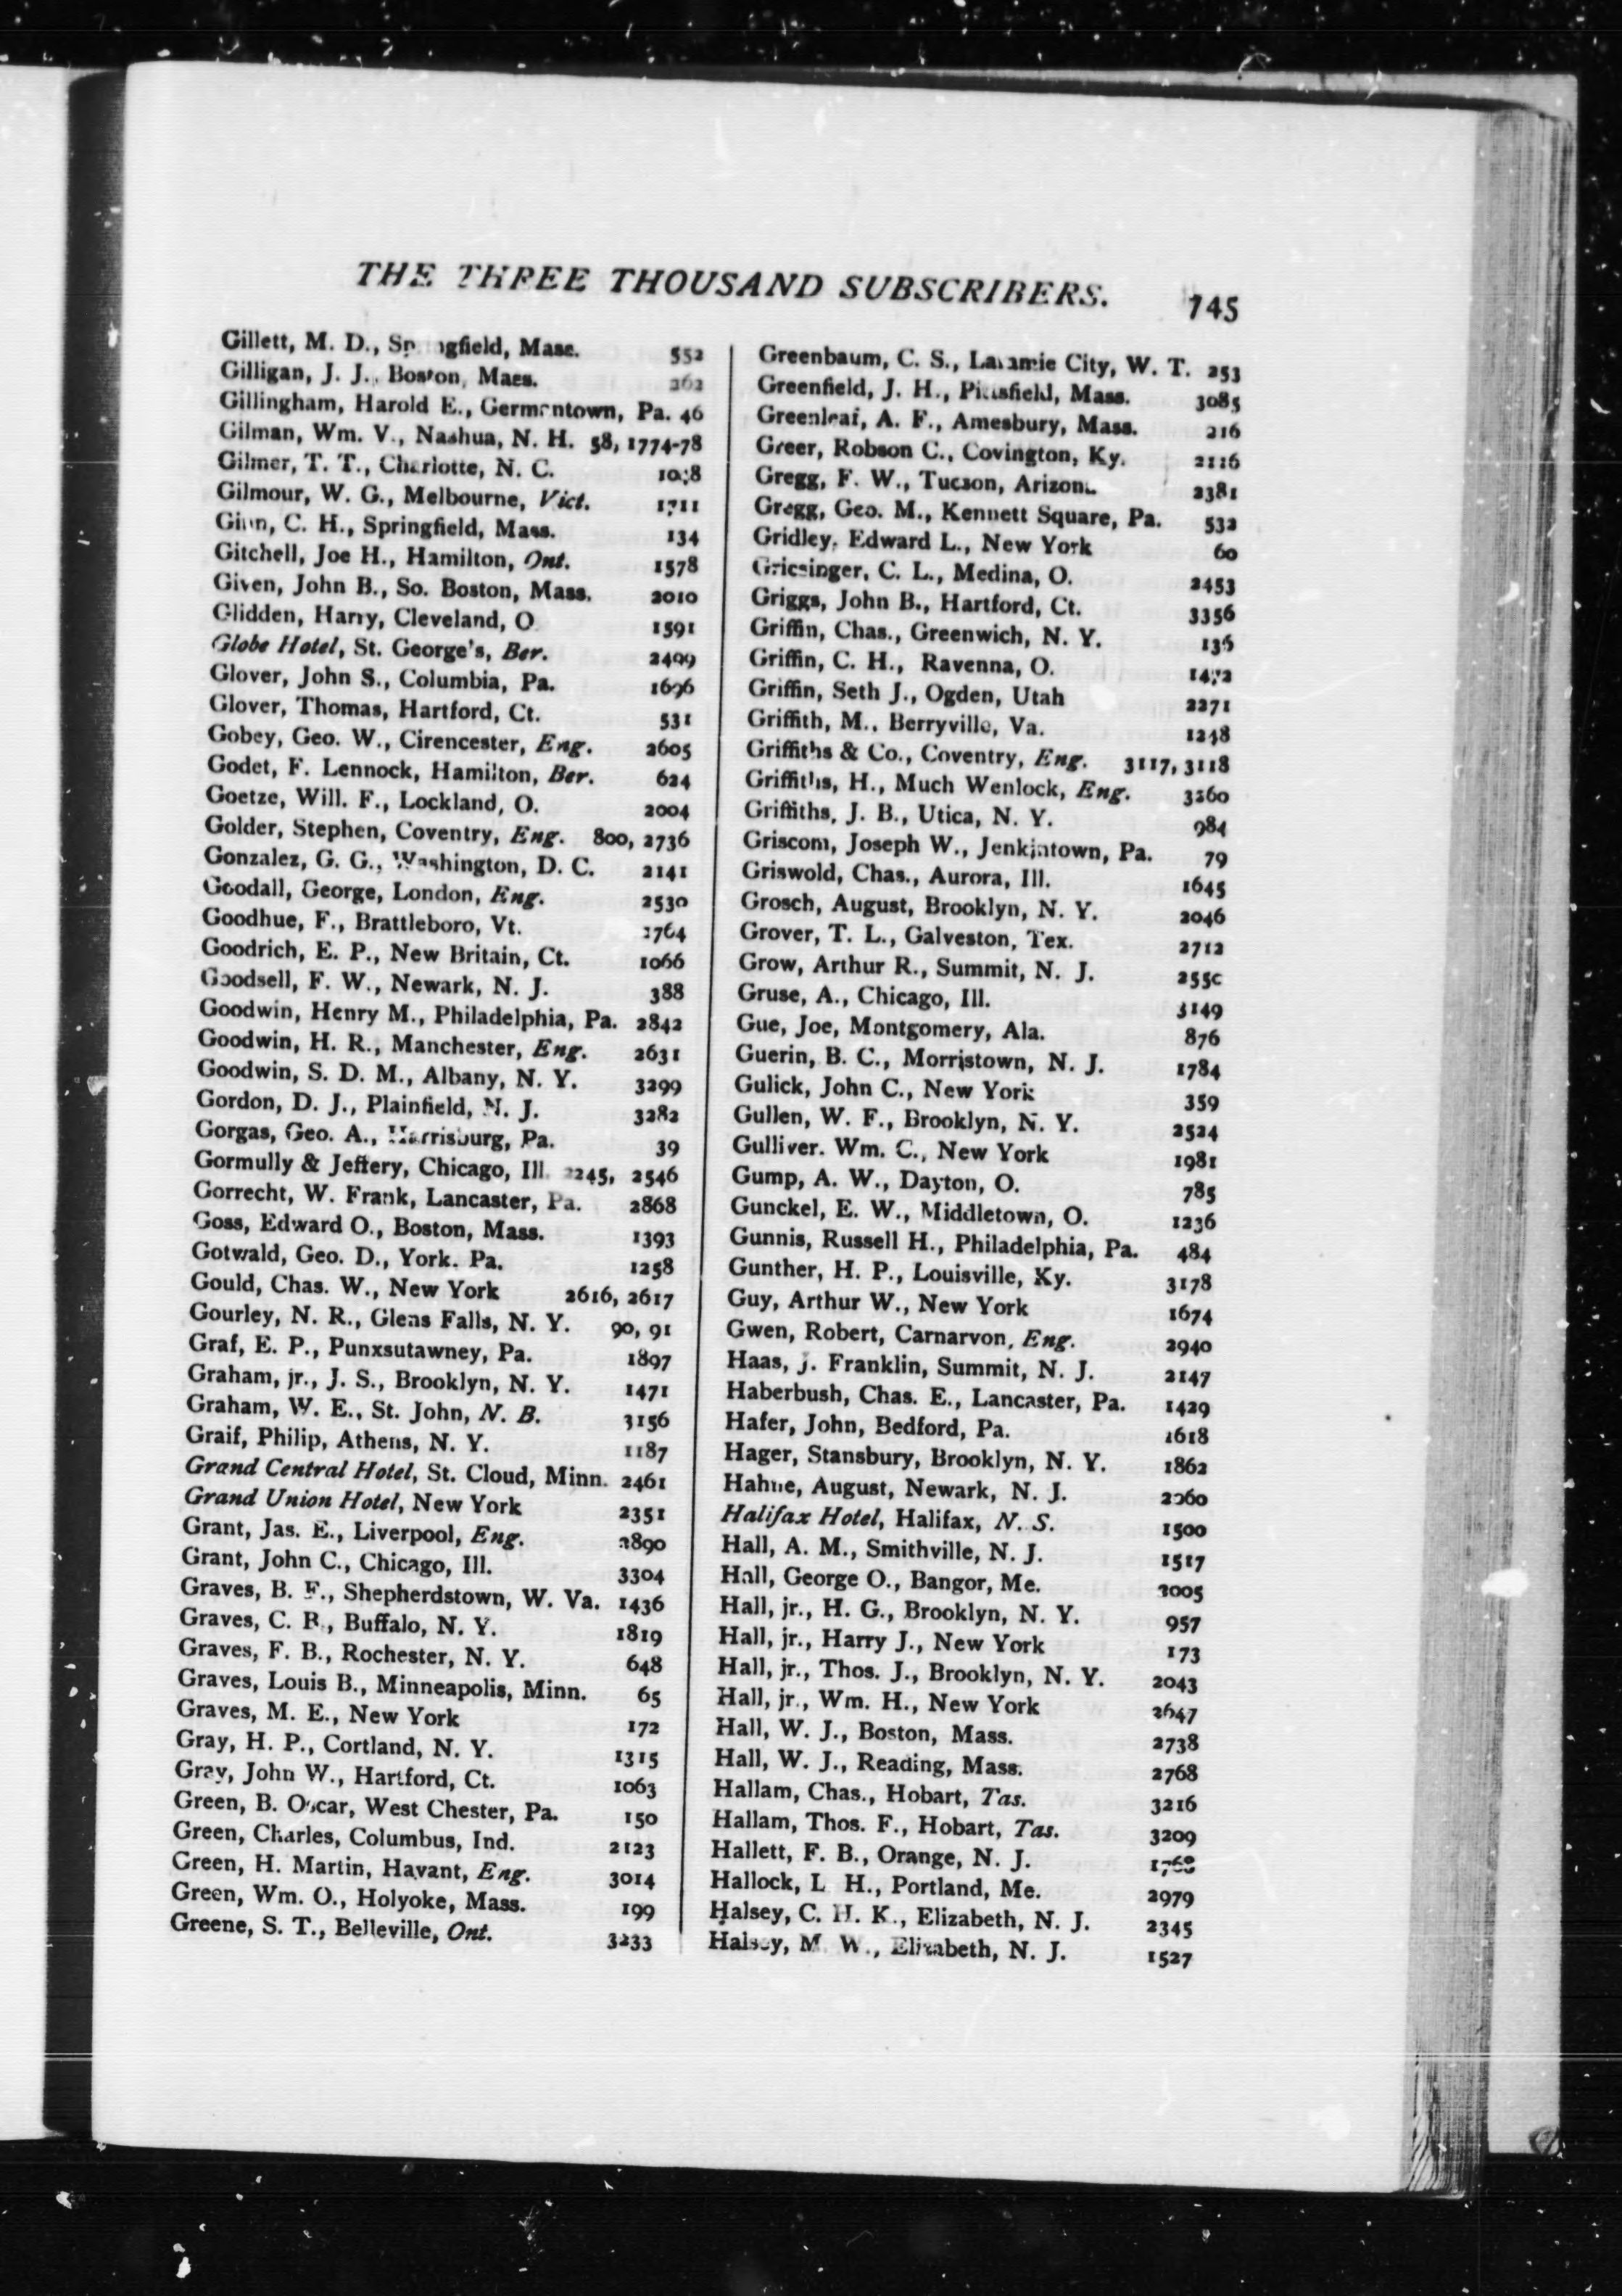 THE THREE THOUSAND SUBSCRIBERS. 745
Gillett, M. D., Mass. 552
Gilligan, J. J., Boston, Mass. 262
Gillingham, Harold E., Germantown, Pa. 46
Gilman, Wm. V., Nashua, N. H. 58, 1774-78
Gilmer, T. T., Charlotte, N. C.
Gilmour, W. G., Melbourne, Vict. 1711
Ginn, C. H., Springfield, Mass. 134
Gitchell, Joe H., Hamilton, Ont. 1578
Given, John B., So. Boston, Mass. 2010
Glidden, Harry, Cleveland, O. 1591
Globe Hotel, St. George's, Ber. 2499
Glover, John S., Columbia, Pa. 1696
Glover, Thomas, Hartford, Ct. 531
Gobey, Geo. W., Cirencester, Eng. 2605
Godet, F. Lennock, Hamilton, Ber. 624
Goetze, Will. F., Lockland, O. 2004
Golder, Stephen, Coventry, Eng. 800, 2736
Gonzalez, G. G., Washington, D. C. 2141
Goodall, George, London, Eng. 2530
Goodhue, F., Brattleboro, Vt. 1764
Goodrich, E. P., New Britain, Ct. 1066
Goodsell, F. W., Newark, N. J. 388
Goodwin, Henry M., Philadelphia, Pa. 2842
Goodwin, H. R., Manchester, Eng. 2631
Goodwin, S. D. M., Albany, N. Y. 3299
Gordon, D. J., Plainfield, N. J. 3282
Gorgas, Geo. A., Harrisburg, Pa. 39
Gormully & Jeffery, Chicago, Ill. 2245, 2546
Gorrecht, W. Frank, Lancaster, Pa. 2868
Goss, Edward O., Boston, Mass. 1393
Gotwald, Geo. D., York. Pa. 1258
Gould, Chas. W., New York 2616, 2617
Gourley, N. R., Glens Falls, N. Y. 90, 91
Graf, E. P., Punxsutawney, Pa. 1897
Graham, jr., J. S., Brooklyn, N. Y. 1471
Graham, W. E., St. John, N. B. 3156
Graif, Philip, Athens, N. Y. 1187
Grand Central Hotel, St. Cloud, Minn. 2461
Grand Union Hotel, New York 2351
Grant, Jas. E., Liverpool, Eng. 2890
Grant, John C., Chicago, Ill. 3304
Graves, B. F., Shepherdstown, W. Va. 1436
Graves, C. B., Buffalo, N. Y. 1819
Graves, F. B., Rochester, N. Y. 648
Graves, Louis B., Minneapolis, Minn. 65
Graves, M. E., New York 172
Gray, H. P., Cortland, N. Y. 1315
Gray, John W., Hartford, Ct. 1063
Green, B. Oscar, West Chester, Pa. 150
Green, Charles, Columbus, Ind. 2123
Green, H. Martin, Havant, Eng. 3014
Green, Wm. O., Holyoke, Mass. 199
Greene, S. T., Belleville, Ont. 3233
Greenbaum, C. S., Laramie City, W. T. 253
Greenfield, J. H., Pittsfield, Mass. 3085
Greenleaf, A. F., Amesbury, Mass. 216
Greer, Robson C., Covington, Ky. 2116
Gregg, F. W., Tucson, Arizona 2381
Gregg, Geo. M., Kennett Square, Pa. 532
Gridley, Edward L., New York 60
Griesinger, C. L., Medina, O. 2453
Griggs, John B., Hartford, Ct. 3356
Griffin, Chas., Greenwich, N. Y. 136
Griffin, C. H., Ravenna, O. 1472
Griffin, Seth J., Ogden, Utah 2271
Griffith, M., Berryville, Va. 1248
Griffiths & Co., Coventry, Eng. 3117, 3118
Griffiths, H., Much Wenlock, Eng. 3260
Griffiths, J. B., Utica, N. Y. 984
Griscom, Joseph W., Jenkintown, Pa. 79
Griswold, Chas., Aurora, Ill. 1645
Grosch, August, Brooklyn, N. Y. 2046
Grover, T. L., Galveston, Tex. 2712
Grow, Arthur R., Summit, N. J. 2550
Gruse, A., Chicago, Ill. 3149
Gue, Joe, Montgomery, Ala. 876
Guerin, B. C., Morristown, N. J. 1784
Gulick, John C., New York 359
Gullen, W. F., Brooklyn, N. Y. 2524
Gulliver. Wm. C., New York 1981
Gump, A. W., Dayton, O. 785
Gunckel, E. W., Middletown, O. 1236
Gunnis, Russell H., Philadelphia, Pa. 484
Gunther, H. P., Louisville, Ky. 3178
Guy, Arthur W., New York 1674
Gwen, Robert, Carnarvon, Eng. 2940
Haas, J. Franklin, Summit, N. J. 2147
Haberbush, Chas. E., Lancaster, Pa. 1429
Hafer, John, Bedford, Pa. 1618
Hager, Stansbury, Brooklyn, N. Y. 1862
Hahne, August, Newark, N. J.
Halifax Hotel, Halifax, N. S. 1500
Hall, A. M., Smithville, N. J. 1517
Hall, George O., Bangor, Me. 3005
Hall, jr., H. G., Brooklyn, N. Y. 957
Hall, jr., Harry J., New York 173
Hall, jr., Thos. J., Brooklyn, N. Y. 2043
Hall, jr., Wm. H., New York 2647
Hall, W. J., Boston, Mass. 2738
Hall, W. J., Reading, Mass. 2768
Hallam, Chas., Hobart, Tas. 3216
Hallam, Thos. F., Hobart, Tas. 3209
Hallett, F. B., Orange, N. J.
Hallock, L. H., Portland, Me. 2979
Halsey, C. H. K., Elizabeth, N. J. 2345
Halsey, M. W., Elizabeth, N. J. 1527